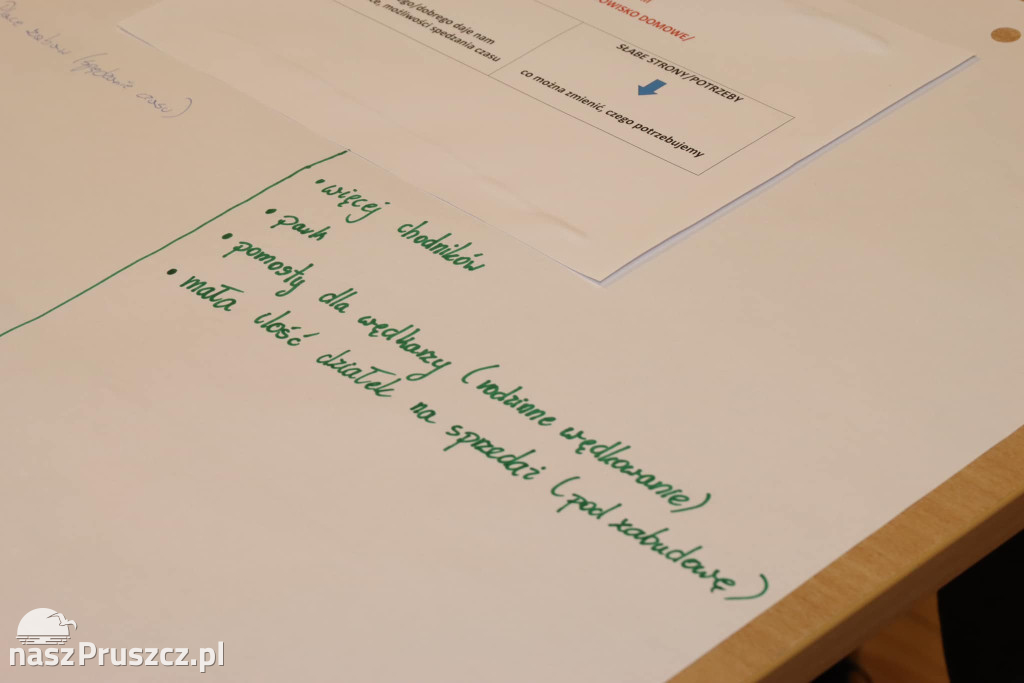 OWISKO DOMOWE/
ego/dobrego daje nam
ce, możliwości spędzania czasu
SŁABE STRONY/POTRZEBY
co można zmienić, czego potrzebujemy
zabaw (spędzanie czasu)
• więcej chodników
• park
• pomosty dla wędkarzy (rodzinne wędkowanie)
• mała ilość działek na sprzedaż (pod zabudowę)
naszPruszcz.pl